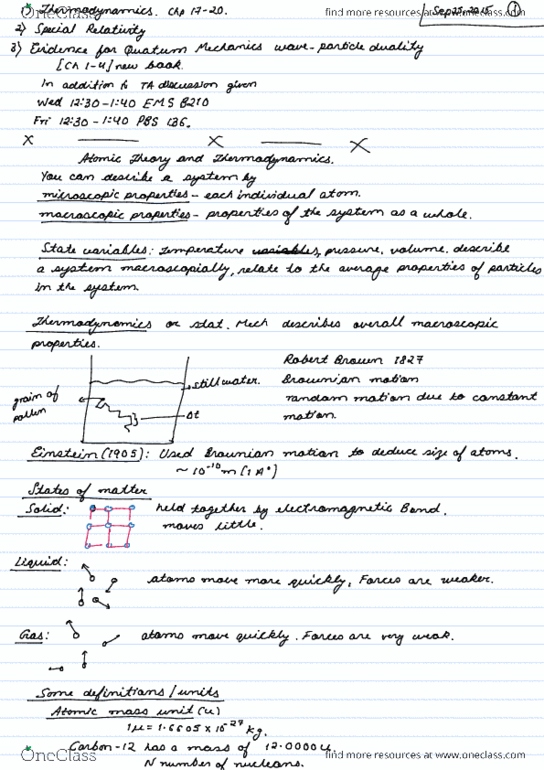 OneClass
find more resources at www.oneclass.com
Sep 25. 2015 ①
1) Thermodynamics. Chp 17-20.
2) Special Relativity
3) Evidence for Quatum Mechanics wave-particle duality
[Ch 1-4] new book.
In addition to TA discussion given
Wed 12:30-1:40 EMS B210
Fri 12:30-1:40 PBS 136.
X X X
Atomic Theory and Thermodynamics.
You can describe a system by
microscopic properties - each individual atom.
macroscopic properties - properties of the system as a whole.
State variables: temperature variables, pressure, volume. describe
a system macroscopially, relate to the average properties of particles
in the system.
Thermodynamics or stat. Mech describes overall macroscopic
properties.
grain of
pollen
still water.
Δt
Robert Brown 1827
Brownian motion
random motion due to constant
motion.
Einstein (1905): Used Brownian motion to deduce size of atoms.
~ 10⁻¹⁰ m (1 A°)
States of matter
Solid: held together by electromagnetic Band.
moves little.
Liquid: atoms move more quickly, Forces are weaker.
Gas: atoms move quickly. Forces are very weak.
Some definitions / units
Atomic mass unit (u)
1μ = 1.6605 x 10⁻²⁷ kg.
Carbon-12 has a mass of 12.0000u.
N number of nucleons.
OneClass
find more resources at www.oneclass.com